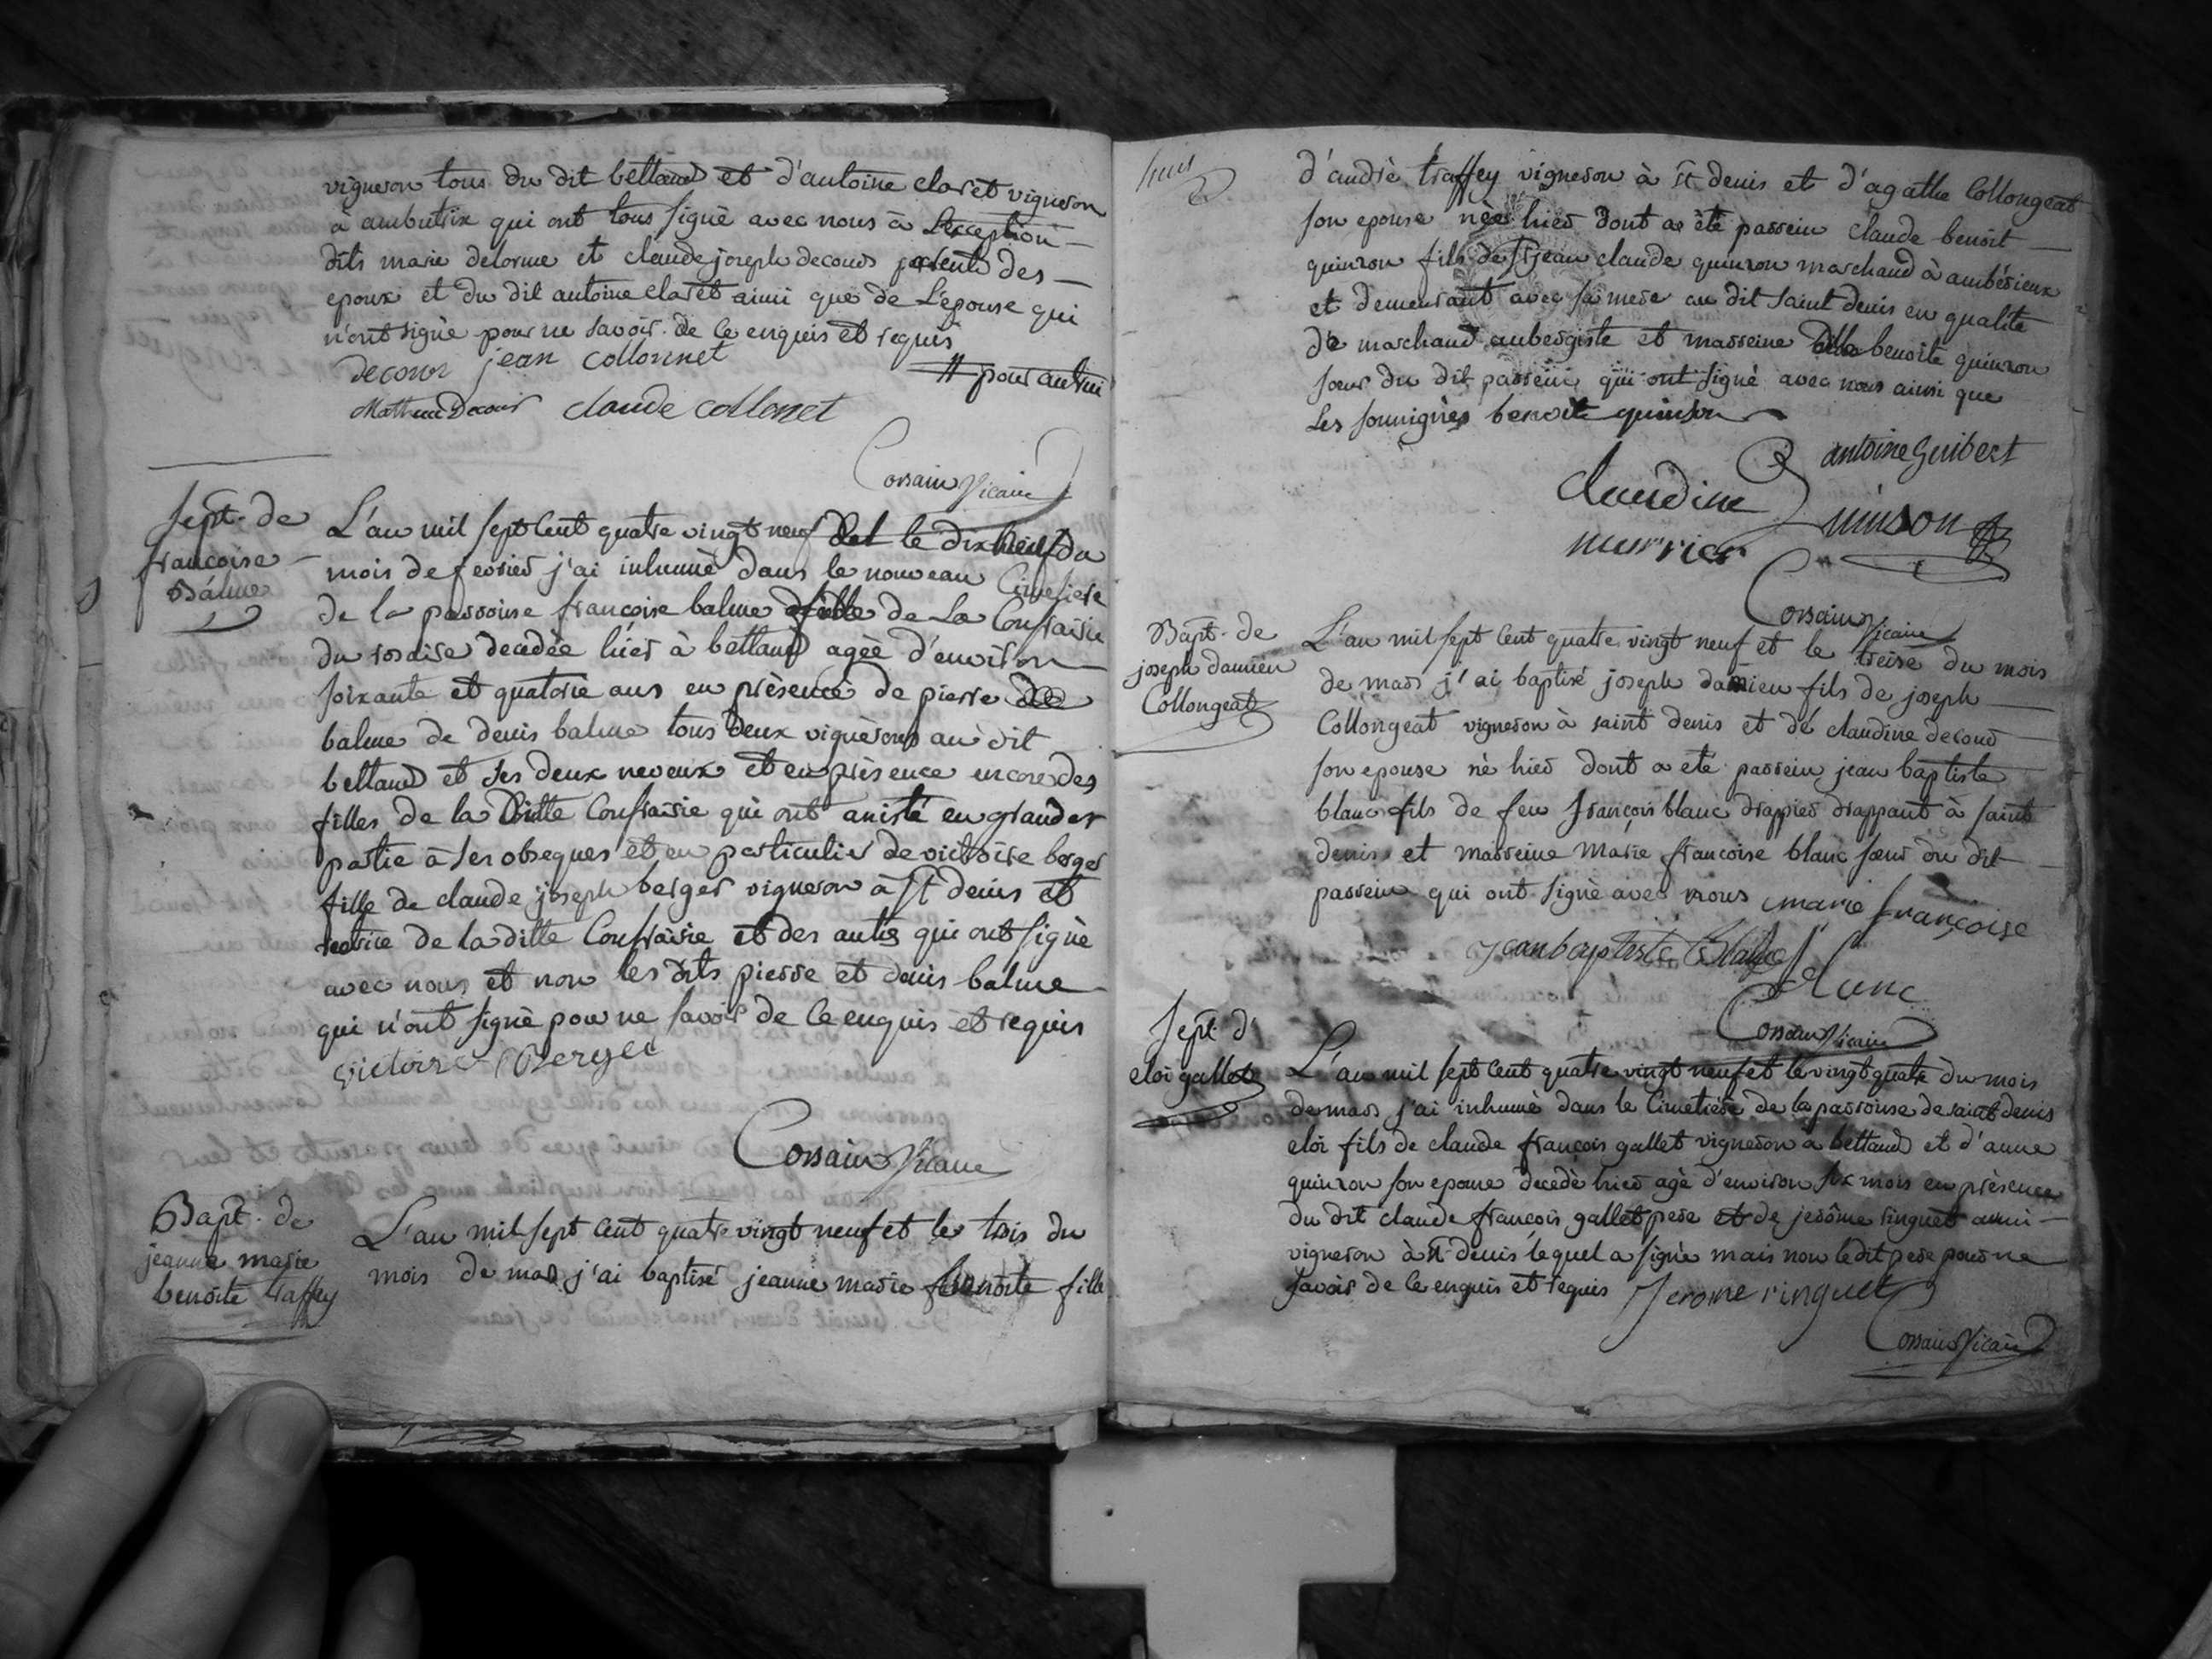 vigneron tous du dit bettand et d'antoine claret vigneron
à ambutrix qui ont tous signé avec nous à L'exception
dits marie delorme et claude joseph decours parents des
epoux et du dit antoine claret ainsi que de L'épouse qui
n'ont signé pour ne savoir de ce enquis et requis
decour jean collonnet
pour autrui
Mathieu Decour claude collonet
Corsain Vicaire
Sept. de
francoise
Balme
L'an mil sept Cent quatre vingt neuf et le dix neuf du
mois de fevrier j'ai inhumé dans le nouveau Cimetiere
de la parroisse françoise balme fille de La Confrairie
du rosaire decedée hier à bettand agée d'environ
soixante et quatorze ans en présence de pierre
balme de denis balme tous deux vignerons au dit
bettand et ses deux neveux et en présence encore des
filles de la Ditte Confrairie qui ont assisté en grande
partie à ses obseques et en particulier de victoire berger
fille de claude joseph berger vigneron à St denis et
rectrice de la ditte Confrairie et des autres qui ont signé
avec nous et non les dits pierre et denis balme
qui n'ont signé pour ne savoir de ce enquis et requis
victoire Berger
Corsain Vicaire
Bapt. de
jeanne marie
benoite traffey
L'an mil sept Cent quatre vingt neuf et le trois du
mois de mars j'ai baptisé jeanne marie benoite fille
d'andré traffey vigneron à St denis et d'agathe Collongeat
son epouse née hier dont a été parrein claude benoit
quinson fils de jean claude quinson marchand à ambérieux
et demeurant avec sa mere au dit saint denis en qualité
de marchand aubergiste et marreine benoite quinson
soeur du dit parrein qui ont signé avec nous ainsi que
Les soussignés benoite quinson
antoine guibert
claudine quinson
murrier
Corsain Vicaire
Bapt. de
joseph damien
Collongeat
L'an mil sept Cent quatre vingt neuf et le treize du mois
de mars j'ai baptisé joseph damien fils de joseph
Collongeat vigneron à saint denis et de claudine decour
son epouse né hier dont a été parrein jean baptiste
blanc fils de feu françois blanc drappier drappant à saint
denis et marreine marie francoise blanc soeur du dit
parrein qui ont signé avec nous marie françoise
jean baptiste Blanc
blanc
Corsain Vicaire
Sept. d'
eloi gallet
L'an mil sept Cent quatre vingt neuf et le vingt quatre du mois
de mars j'ai inhumé dans le Cimetiére de la parroisse de saint denis
eloi fils de claude françois gallet vigneron à bettand et d'anne
quinson son epouse decedé hier agé d'environ six mois en présence
du dit claude françois gallet pere et de jerôme ringuet aussi
vigneron à St denis lequel a signé mais non ledit pere pour ne
savoir de ce enquis et requis Jerome ringuet
Corsain Vicaire